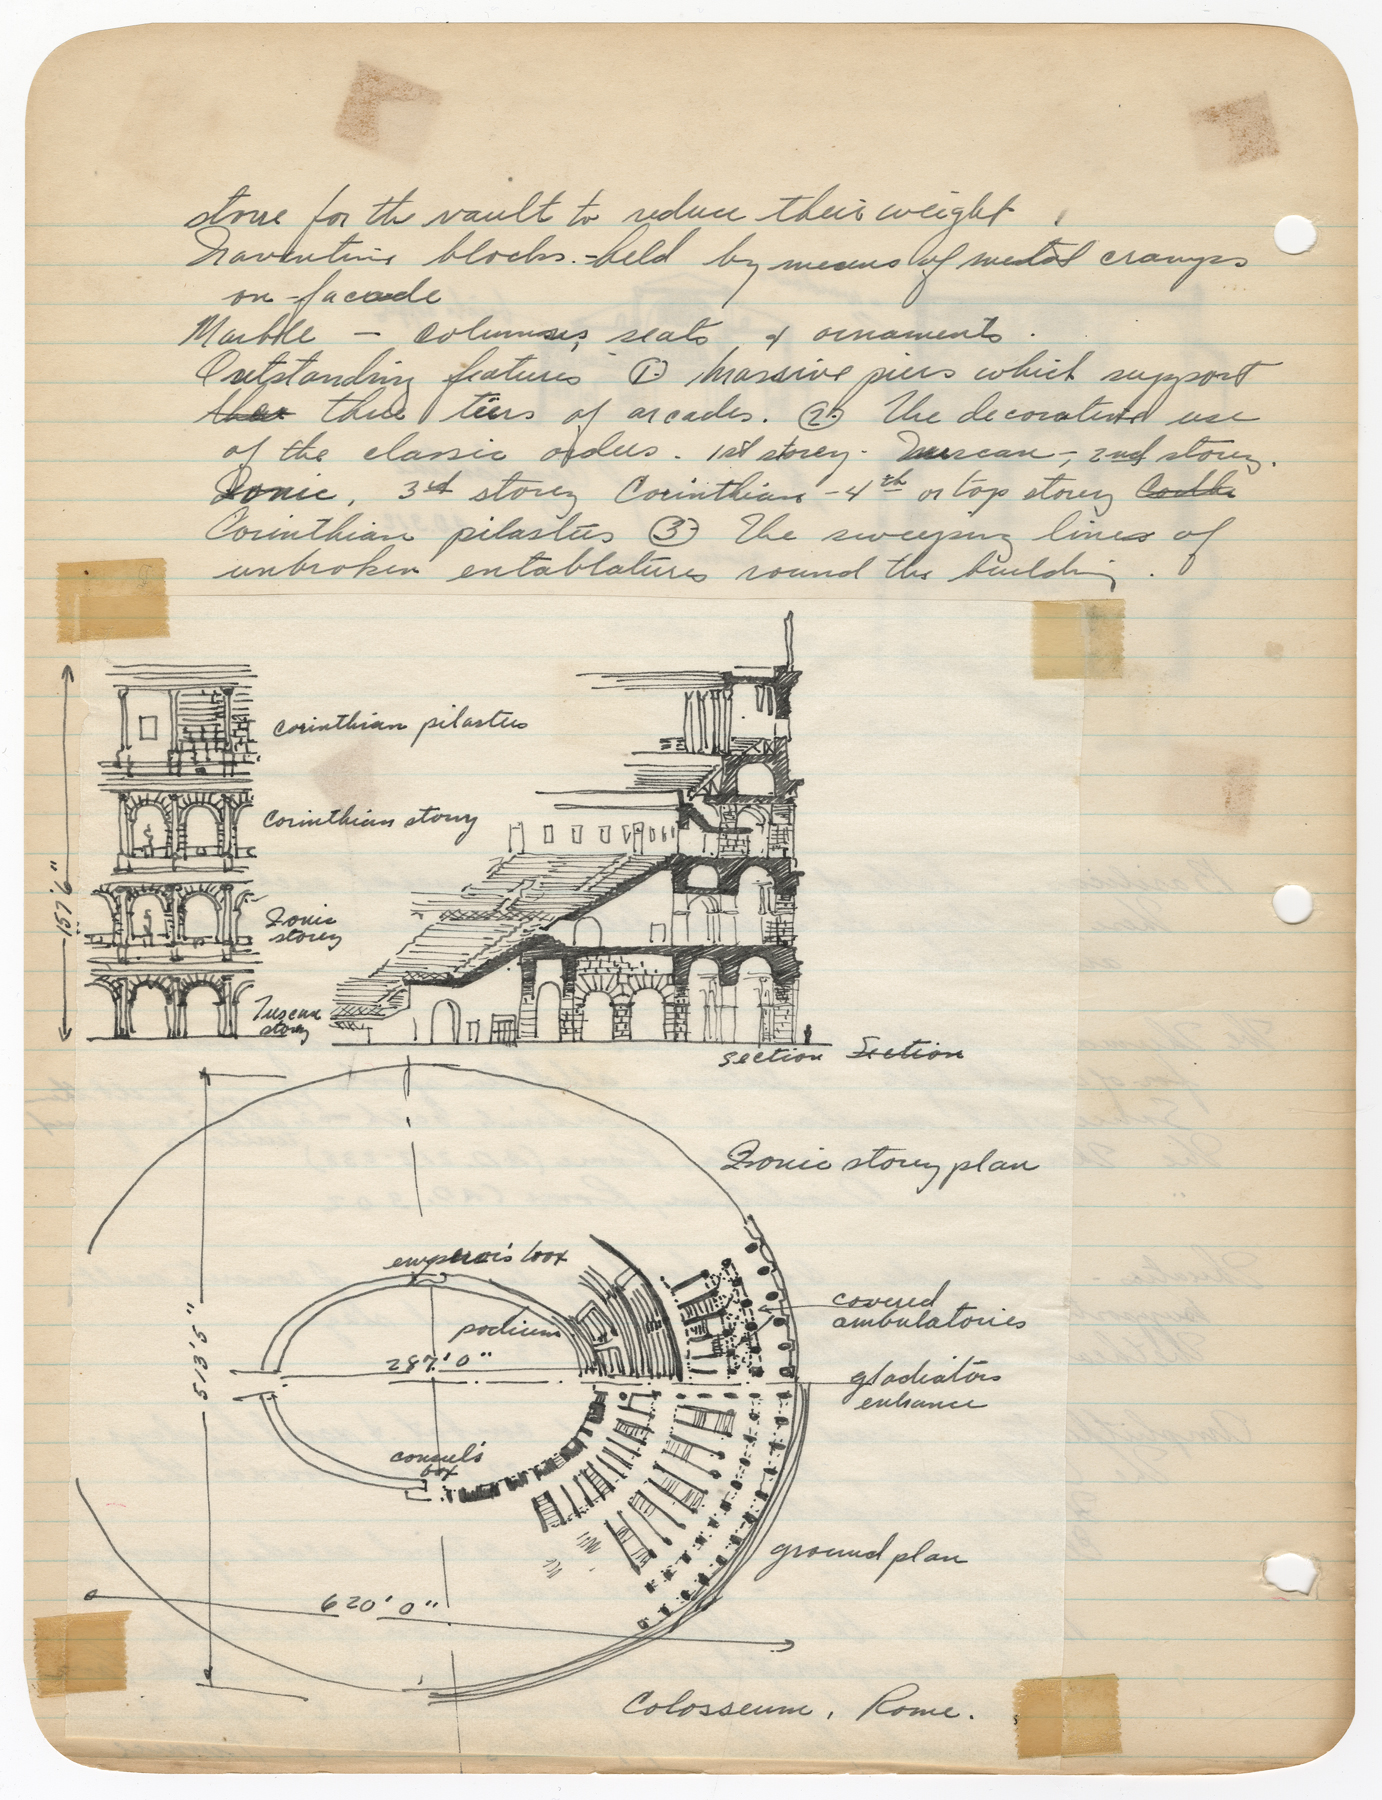 stone for the vault to reduce their weight.
Traventine blocks. - held by means of metal cramps
on facade
Marble - columns, seats & ornaments.
Outstanding features ① Massive piers which support
three tiers of arcades. ② The decorative use
of the classic orders. 1st storey - Tuscan -, 2nd storey.
Ionic, 3rd storey Corinthian - 4th or top storey
Corinthian pilasters ③ The sweeping lines of
unbroken entablatures round the building.
corinthian pilasters
corinthian storey
Ionic
storey
Tuscan
storey
157'6"
section Section
Ionic storey plan
emperor's box
podium
287'0"
covered
ambulatories
gladiators
entrance
consul's
box
513'5"
ground plan
620'0"
Colosseum, Rome.